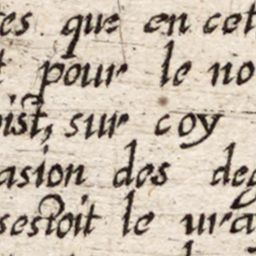 es que en cet
t pour le no
oist, sur coy
asion des deg
sestoit le vra